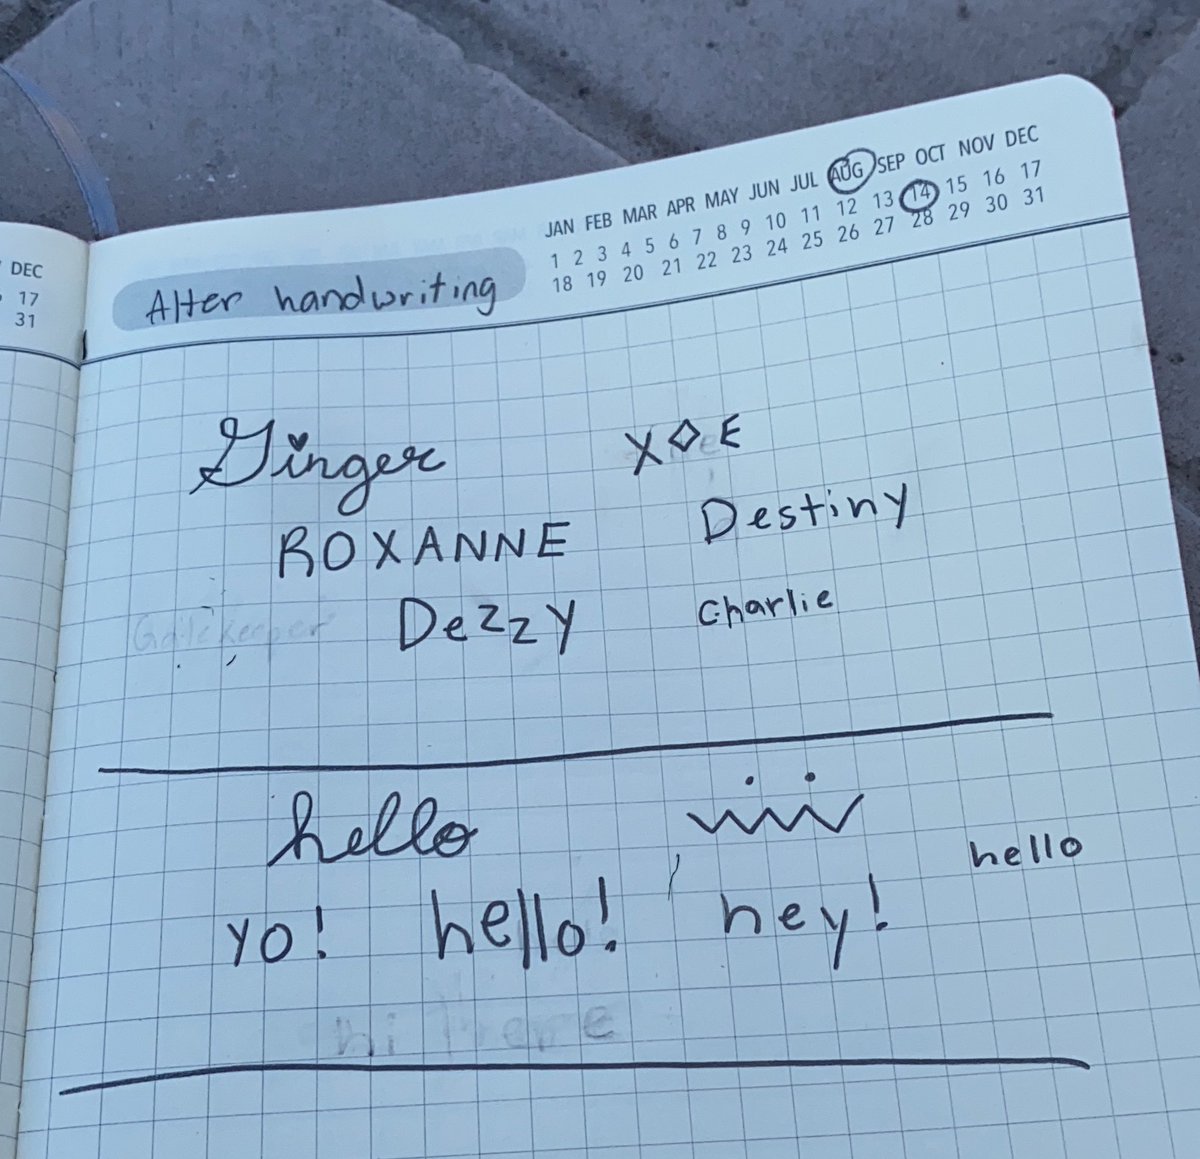 DEC
17
31
JAN FEB MAR APR MAY JUN JUL AUG SEP OCT NOV DEC
1 2 3 4 5 6 7 8 9 10 11 12 13 14 15 16 17
18 19 20 21 22 23 24 25 26 27 28 29 30 31
Alter handwriting
Ginger X◇E
ROXANNE Destiny
Gatekeeper DeZzY Charlie
hello
hello
yo! hello! hey!
hi there